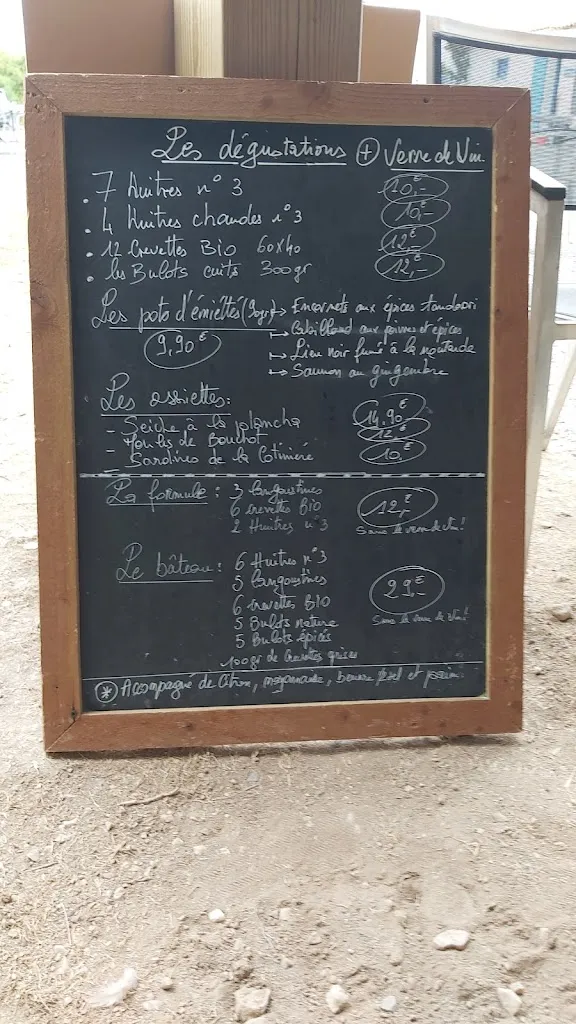 Les dégustations + Verre de Vin
. 7 Huitres n° 3 10,-€
. 4 Huitres chaudes n° 3 10,-€
. 12 Crevettes Bio 60x40 12,-€
. les Bulots cuits 300gr 12,-€
Les pots d'émiettés (90gr) → Encornets aux épices tandoori
9,90€ → Cabillaud aux poivres et épices
→ Lieu noir fumé à la moutarde
→ Saumon au gingembre
Les assiettes:
- Seiche à la plancha 14,90€
- Moules de Bouchot 12,€
- Sardines de la Cotinière 10,€
La formule: 3 langoustines
6 crevettes Bio 12,-€
2 Huitres n° 3 Sans le verre de vin!
Le bâteau: 6 Huitres n° 3
5 langoustines
6 crevettes BIO 29,-€
5 Bulots nature Sans le verre de vin!
5 Bulots épicés
100gr de Crevettes grises
* Accompagné de Citron, mayonnaise, beurre ½ sel et pain.